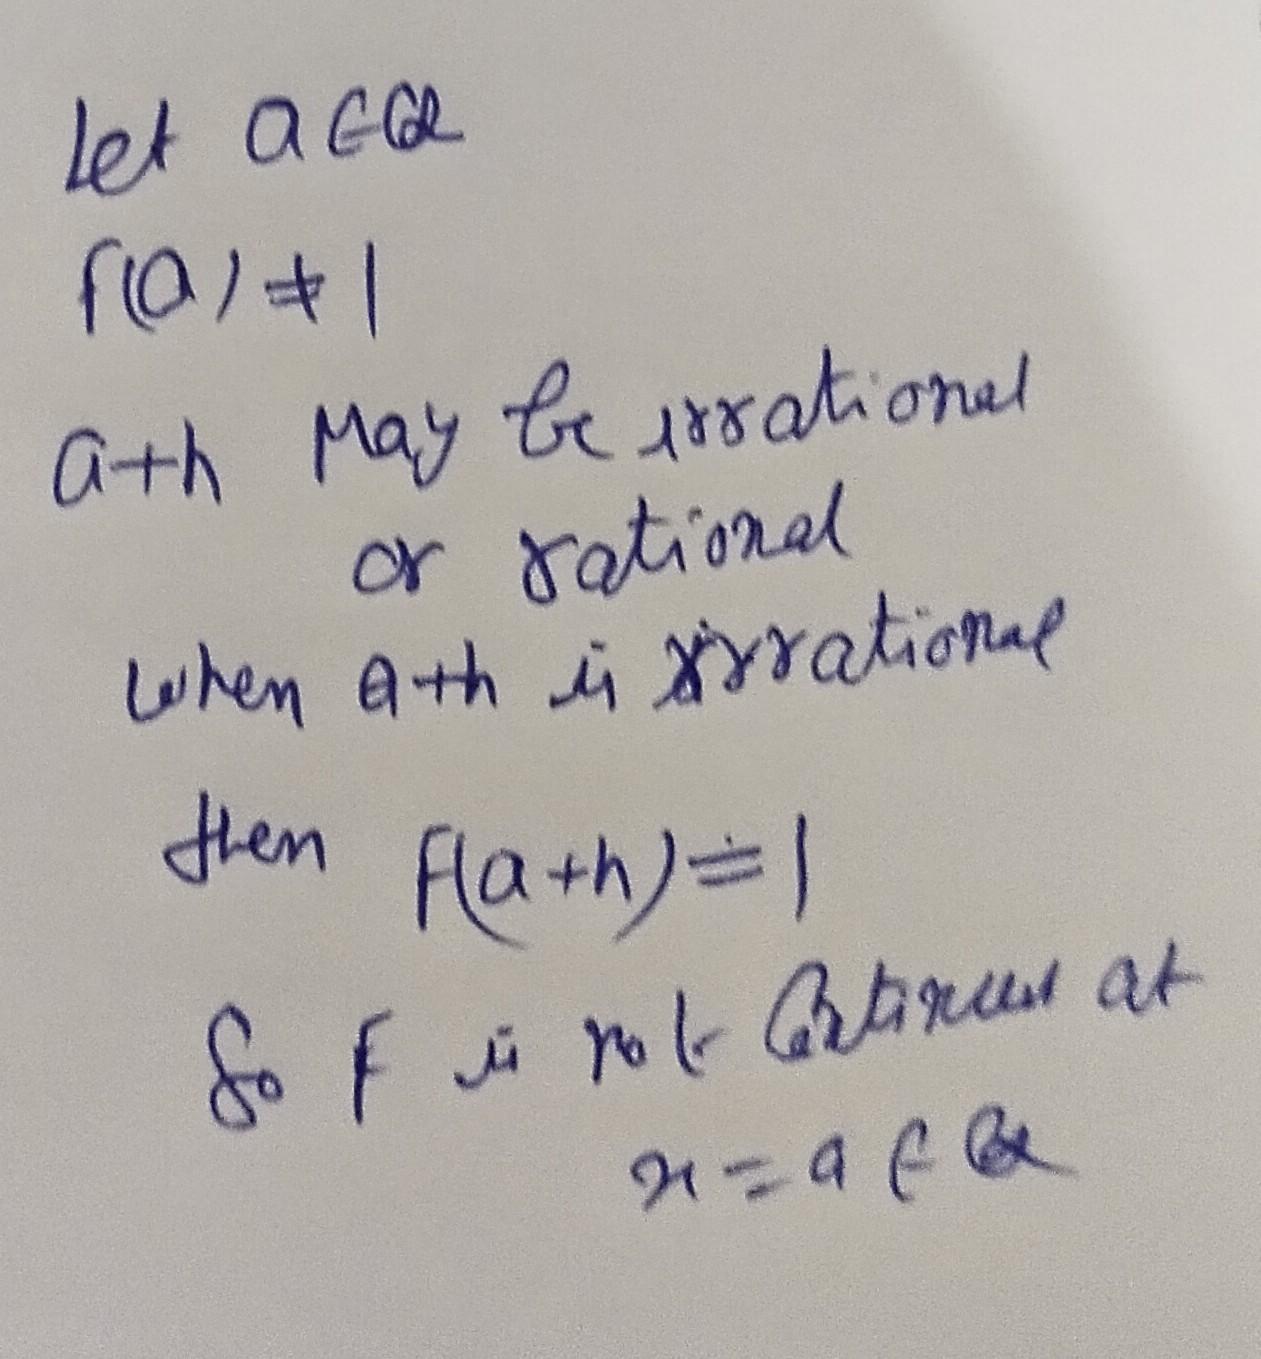 Let a ∈ Q
f(a) ≠ 1
a+h May be irrational
or rational
when a+h is irrational
then f(a+h) = 1
So f is not Continuous at
x = a ∈ Q